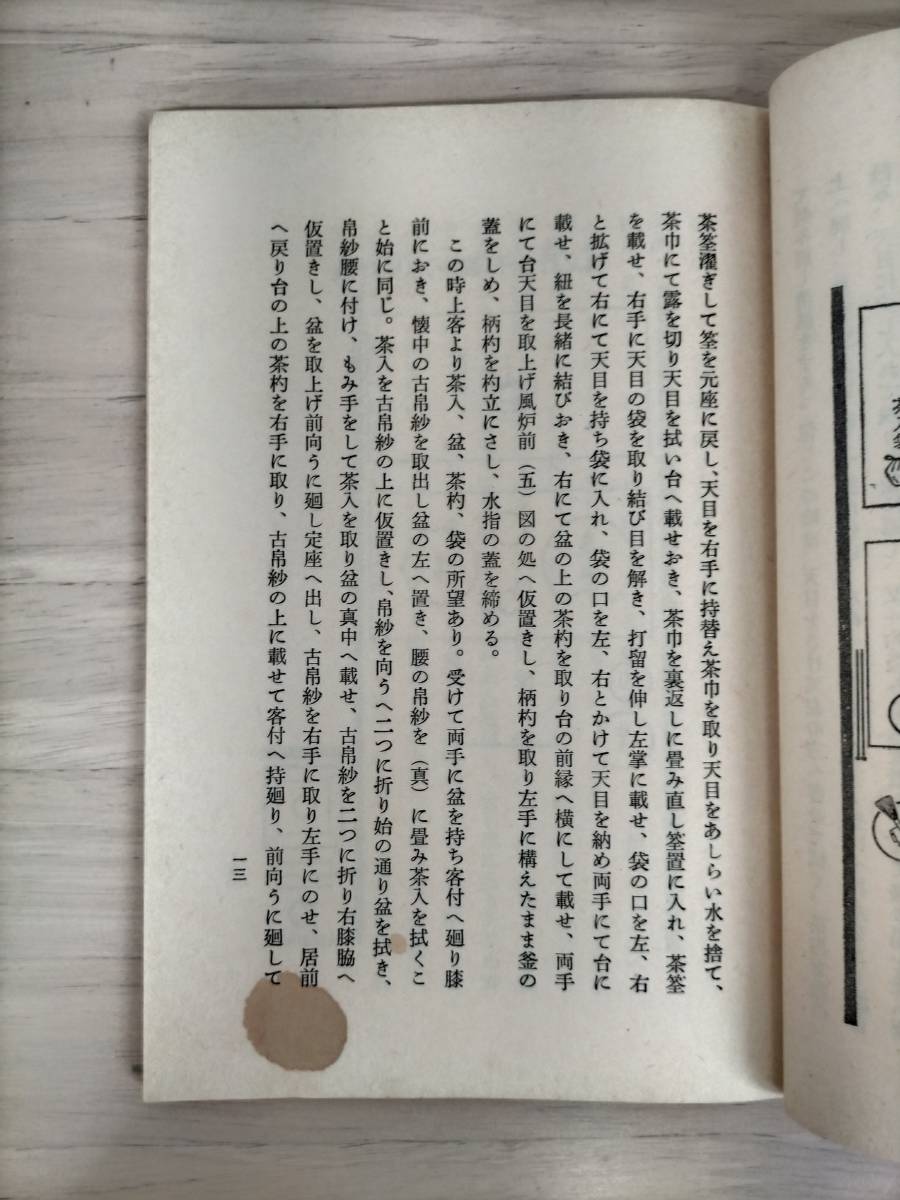 茶筌濯ぎして筌を元座に戻し、天目を右手に持替え茶巾を取り天目をあしらい水を捨て、
茶巾にて露を切り天目を拭い台へ載せおき、茶巾を裏返しに畳み直し筌置に入れ、茶筌
を載せ、右手に天目の袋を取り結び目を解き、打留を伸し左掌に載せ、袋の口を左、右
と拡げて右にて天目を持ち袋に入れ、袋の口を左、右とかけて天目を納め両手にて台に
載せ、紐を長緒に結びおき、右にて盆の上の茶杓を取り台の前縁へ横にして載せ、両手
にて台天目を取上げ風炉前（五）図の処へ仮置きし、柄杓を取り左手に構えたまま釜の
蓋をしめ、柄杓を杓立にさし、水指の蓋を締める。
この時上客より茶入、盆、茶杓、袋の所望あり。受けて両手に盆を持ち客付へ廻り膝
前におき、懐中の古帛紗を取出し盆の左へ置き、腰の帛紗を（真）に畳み茶入を拭くこ
と始に同じ。茶入を古帛紗の上に仮置きし、帛紗を向うへ二つに折り始の通り盆を拭き、
帛紗腰に付け、もみ手をして茶入を取り盆の真中へ載せ、古帛紗を二つに折り右膝脇へ
仮置きし、盆を取上げ前向うに廻し定座へ出し、古帛紗を右手に取り左手にのせ、居前
へ戻り台の上の茶杓を右手に取り、古帛紗の上に載せて客付へ持廻り、前向うに廻して
一三